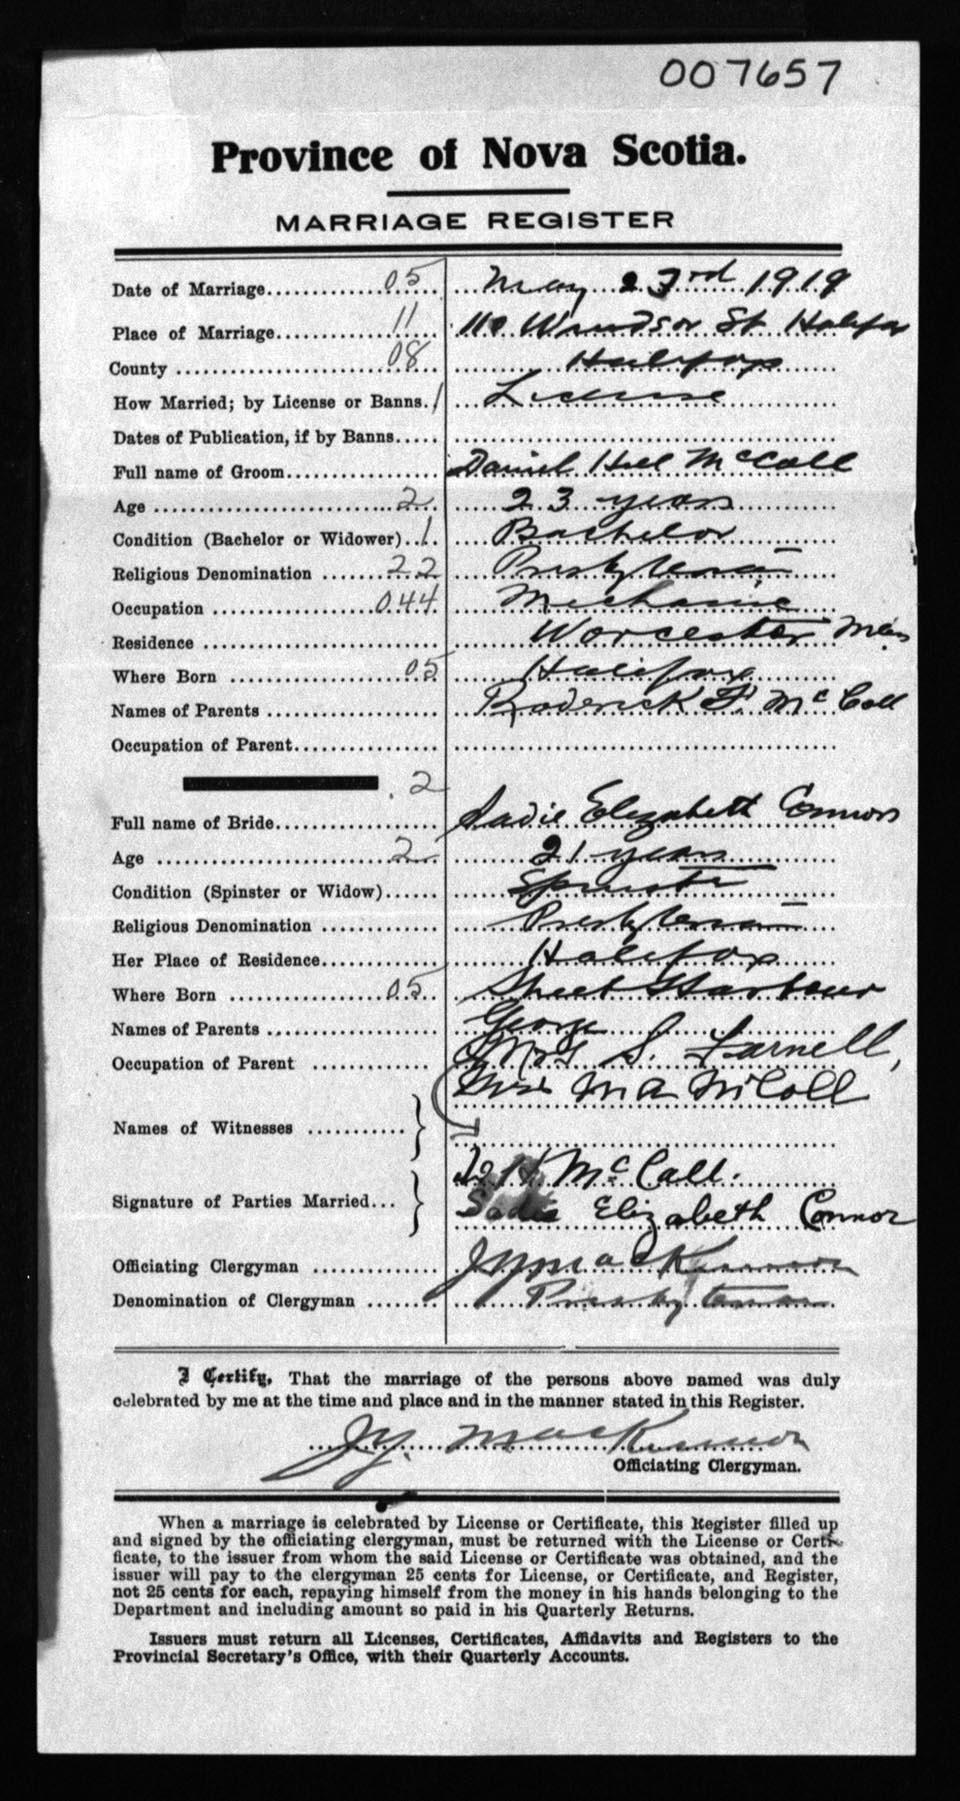 007657
Province of Nova Scotia.
MARRIAGE REGISTER
Date of Marriage 05 May 23rd 1919
Place of Marriage 11 110 Windsor St Halifax
County 08 Halifax
How Married; by License or Banns. 1 License
Dates of Publication, if by Banns
Full name of Groom Daniel Hill McColl
Age 2 23 years
Condition (Bachelor or Widower) 1 Bachelor
Religious Denomination 22 Presbyterian
Occupation 044 Mechanic
Residence Worcester Mass
Where Born 05 Halifax
Names of Parents Roderick F. McColl
Occupation of Parent
2
Full name of Bride Sadie Elizabeth Connors
Age 2 21 years
Condition (Spinster or Widow) Spinster
Religious Denomination Presbyterian
Her Place of Residence Halifax
Where Born 05 Sheet Harbour
Names of Parents George
Occupation of Parent Mrs S. Farnell,
Mrs M A McColl
Names of Witnesses
H McCall.
Signature of Parties Married Sadie Elizabeth Connor
Officiating Clergyman J Y MacKinnon
Denomination of Clergyman Presbyterian
I Certify, That the marriage of the persons above named was duly
celebrated by me at the time and place and in the manner stated in this Register.
J Y. MacKinnon
Officiating Clergyman.
When a marriage is celebrated by License or Certificate, this Register filled up
and signed by the officiating clergyman, must be returned with the License or Certi-
ficate, to the issuer from whom the said License or Certificate was obtained, and the
issuer will pay to the clergyman 25 cents for License, or Certificate, and Register,
not 25 cents for each, repaying himself from the money in his hands belonging to the
Department and including amount so paid in his Quarterly Returns.
Issuers must return all Licenses, Certificates, Affidavits and Registers to the
Provincial Secretary's Office, with their Quarterly Accounts.